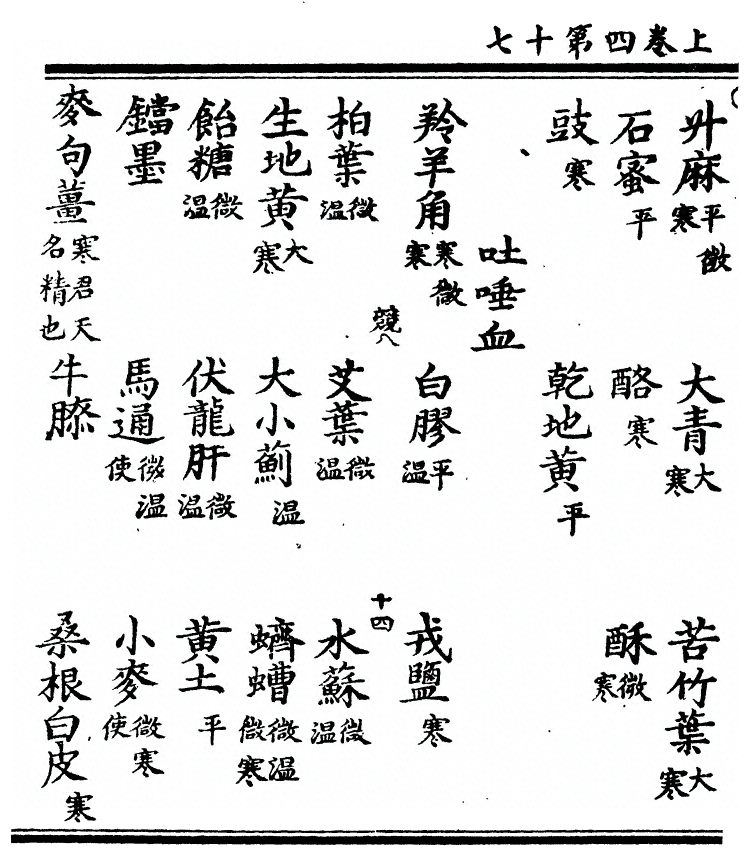 上卷四第十七
升麻 平微寒 大青 大寒 苦竹葉 大寒
石蜜 平 酪 寒 酥 微寒
豉 寒 乾地黄 平
吐唾血
羚羊角 寒微寒 白膠 平温 戎鹽 寒
十四
柏葉 微温 艾葉 微温 水蘇 微温
生地黄 大寒 大小薊 温 蠐螬 微温微寒
飴糖 微温 伏龍肝 微温 黄土 平
鐺墨 馬通 微温使 小麥 微寒使
麥句薑 寒君天名精也 牛膝 桑根白皮 寒